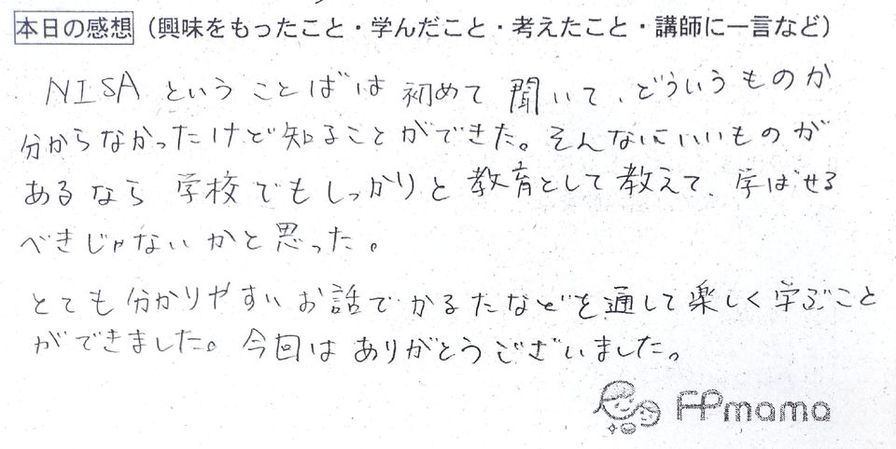 本日の感想（興味をもったこと・学んだこと・考えたこと・講師に一言など）
NISAということばは初めて聞いて、どういうものか
分からなかったけど知ることができた。そんなにいいものが
あるなら学校でもしっかりと教育として教えて、学ばせる
べきじゃないかと思った。
とても分かりやすいお話でかるたなどを通して楽しく学ぶこと
ができました。今回はありがとうございました。
FPmama